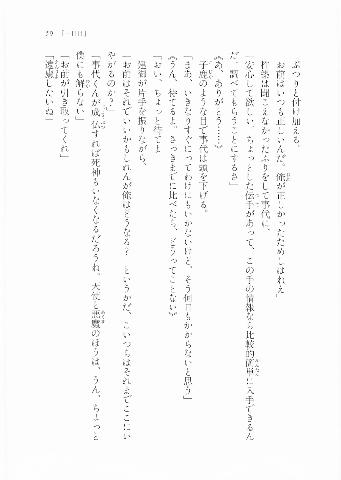 59 [ 一 ＋ 川 ]
ぷつりと付け加える。
「お前はいつも正しいんだ。俺が正しかったためしはねえ」
柊哉は聞こえなかったふりをして事代に、
「安心して欲しい。ちょっとした伝手があって、この手の情報なら比較的簡単に入手できるん
だ。調べてもらうことにするさ」
《あ、ありがとう……》
子鹿のような目で事代は頭を下げる。
「まあ、いきなりすぐにってわけにはいかないけど、そう何日もかからないと思う」
《うん、待てるよ。さっきまでに比べたら、どうってことない》
「おい、ちょっと待てよ」
建御が片手を振りながら、
「お前はそれでいいかもしれんが俺はどうなる？　というかだ、こいつらはそれまでここにい
やがるのか？」
「事代くんが成仏すれば死神もいなくなるだろうね。天使と悪魔のほうは、うん、ちょっと
僕にも解らない」
「お前が引き取ってくれ」
「遠慮したいね」